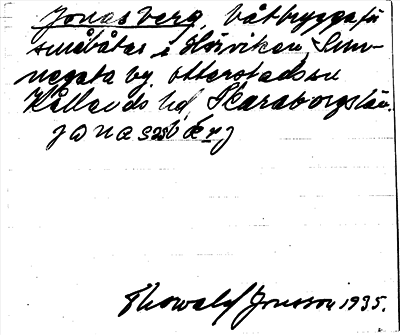 Jonasberg, båtbrygga för
småbåtar i Hörviken, Sim-
negata by, Otterstads sn
Kållands hd, Skaraborgs län.
jonasbærj
Thorvald Jonsson 1935.